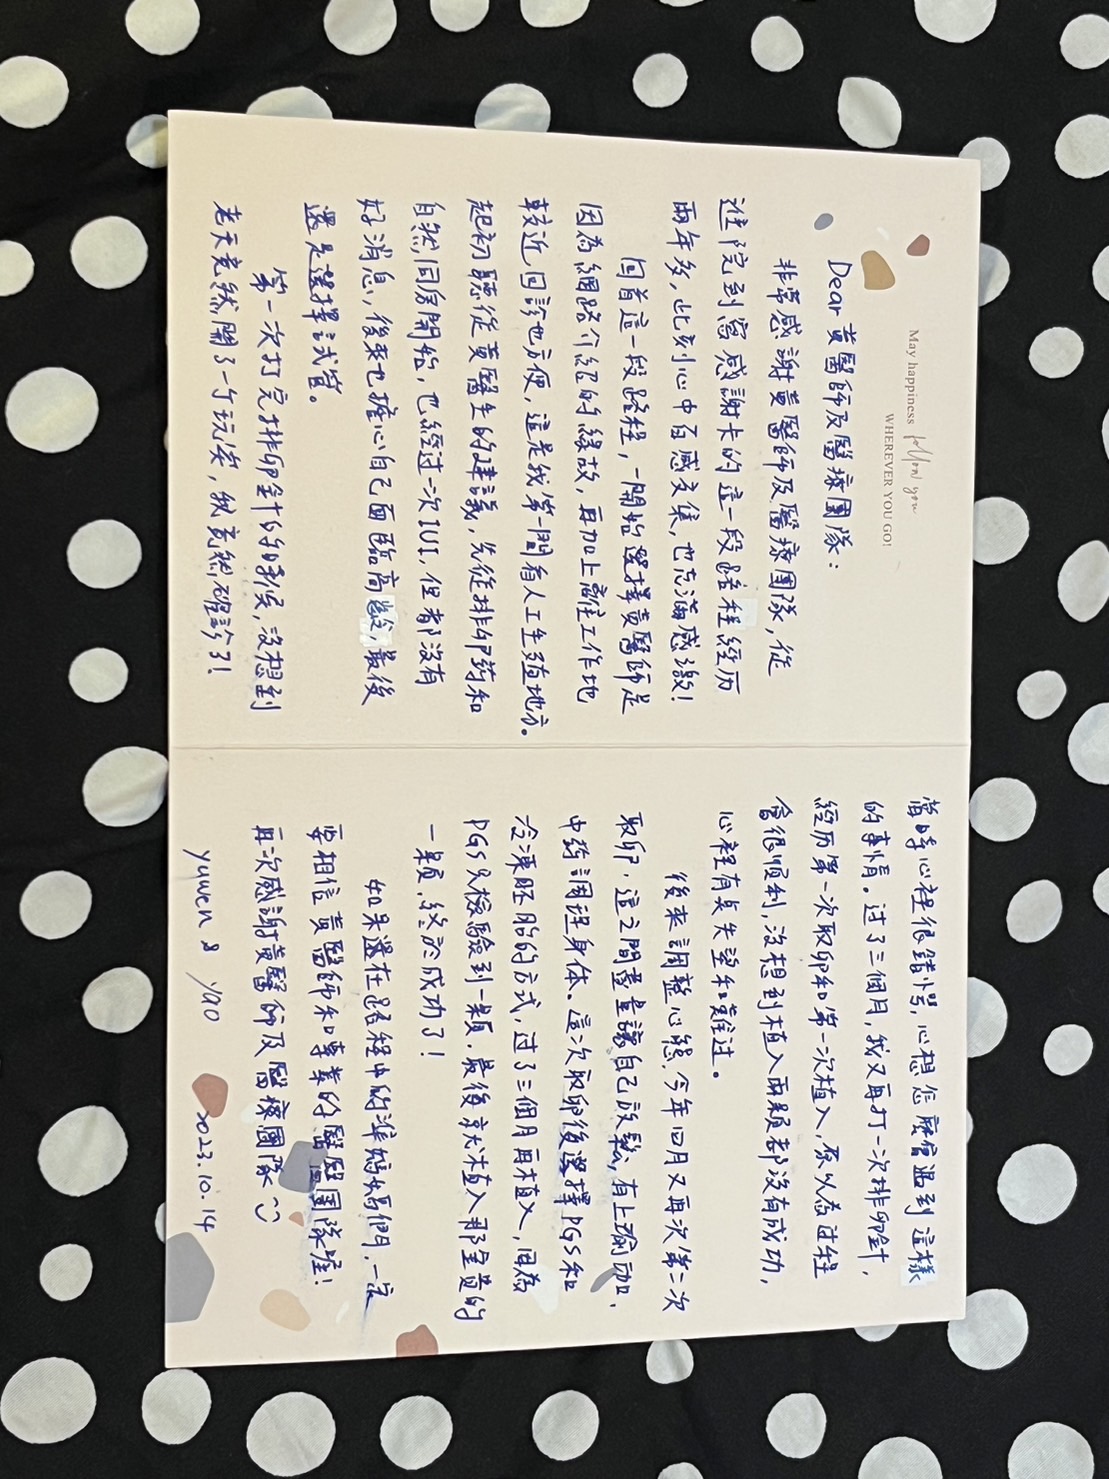 May happiness follow you
WHEREVER YOU GO!
Dear 黃醫師及醫療團隊：
非常感謝黃醫師及醫療團隊，從
進院到寫感謝卡的這一段路程經历
兩年多，此刻心中百感交集，也充滿感激！
回首這一段路程，一開始選擇黃醫師是
因為網路介紹的緣故，再加上離住工作地
較近，回診也方便，這是我第一間看人工生殖地方。
起初聽從黃醫生的建議，先從排卵药和
自然同房開始，也經过一次IUI，但都没有
好消息，後來也擔心自己面臨高齡，最後
還是選擇試管。
第一次打完排卵針的時候，没想到
老天竟然開了一个玩笑，我竟然確診了！
當時心裡很錯愕，心想怎麼會遇到這樣
的事情。过了三個月，我又再打一次排卵針，
經历第一次取卵和第一次植入，原以為过程
會很順利，没想到植入兩顆都没有成功，
心裡有点失望和難过。
後來調整心態，今年四月又再次第二次
取卵，這之間盡量讓自己放鬆，有上瑜珈、
中药調理身体。這次取卵後選擇PGS和
冷凍胚胎的方式，过了三個月再植入，因為
PGS只檢驗到一顆，最後就植入那宝貴的
一顆，終於成功了！
如果還在路程中的準媽媽們，一定
要相信黃醫師和專業的醫医团隊喔！
再次感謝黃醫師及醫療團隊
yuwen & yao 2023.10.14